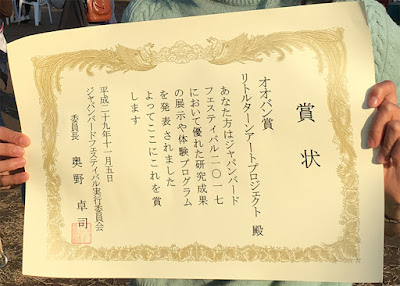 賞状
オオバン賞
リトルターンアートプロジェクト 殿
あなた方はジャパンバード
フェスティバル二〇一七
において優れた研究成果
の展示や体験プログラム
を発表されました
よってここにこれを賞
します
平成二十九年十一月五日
ジャパンバードフェスティバル実行委員会
委員長 奥野卓司